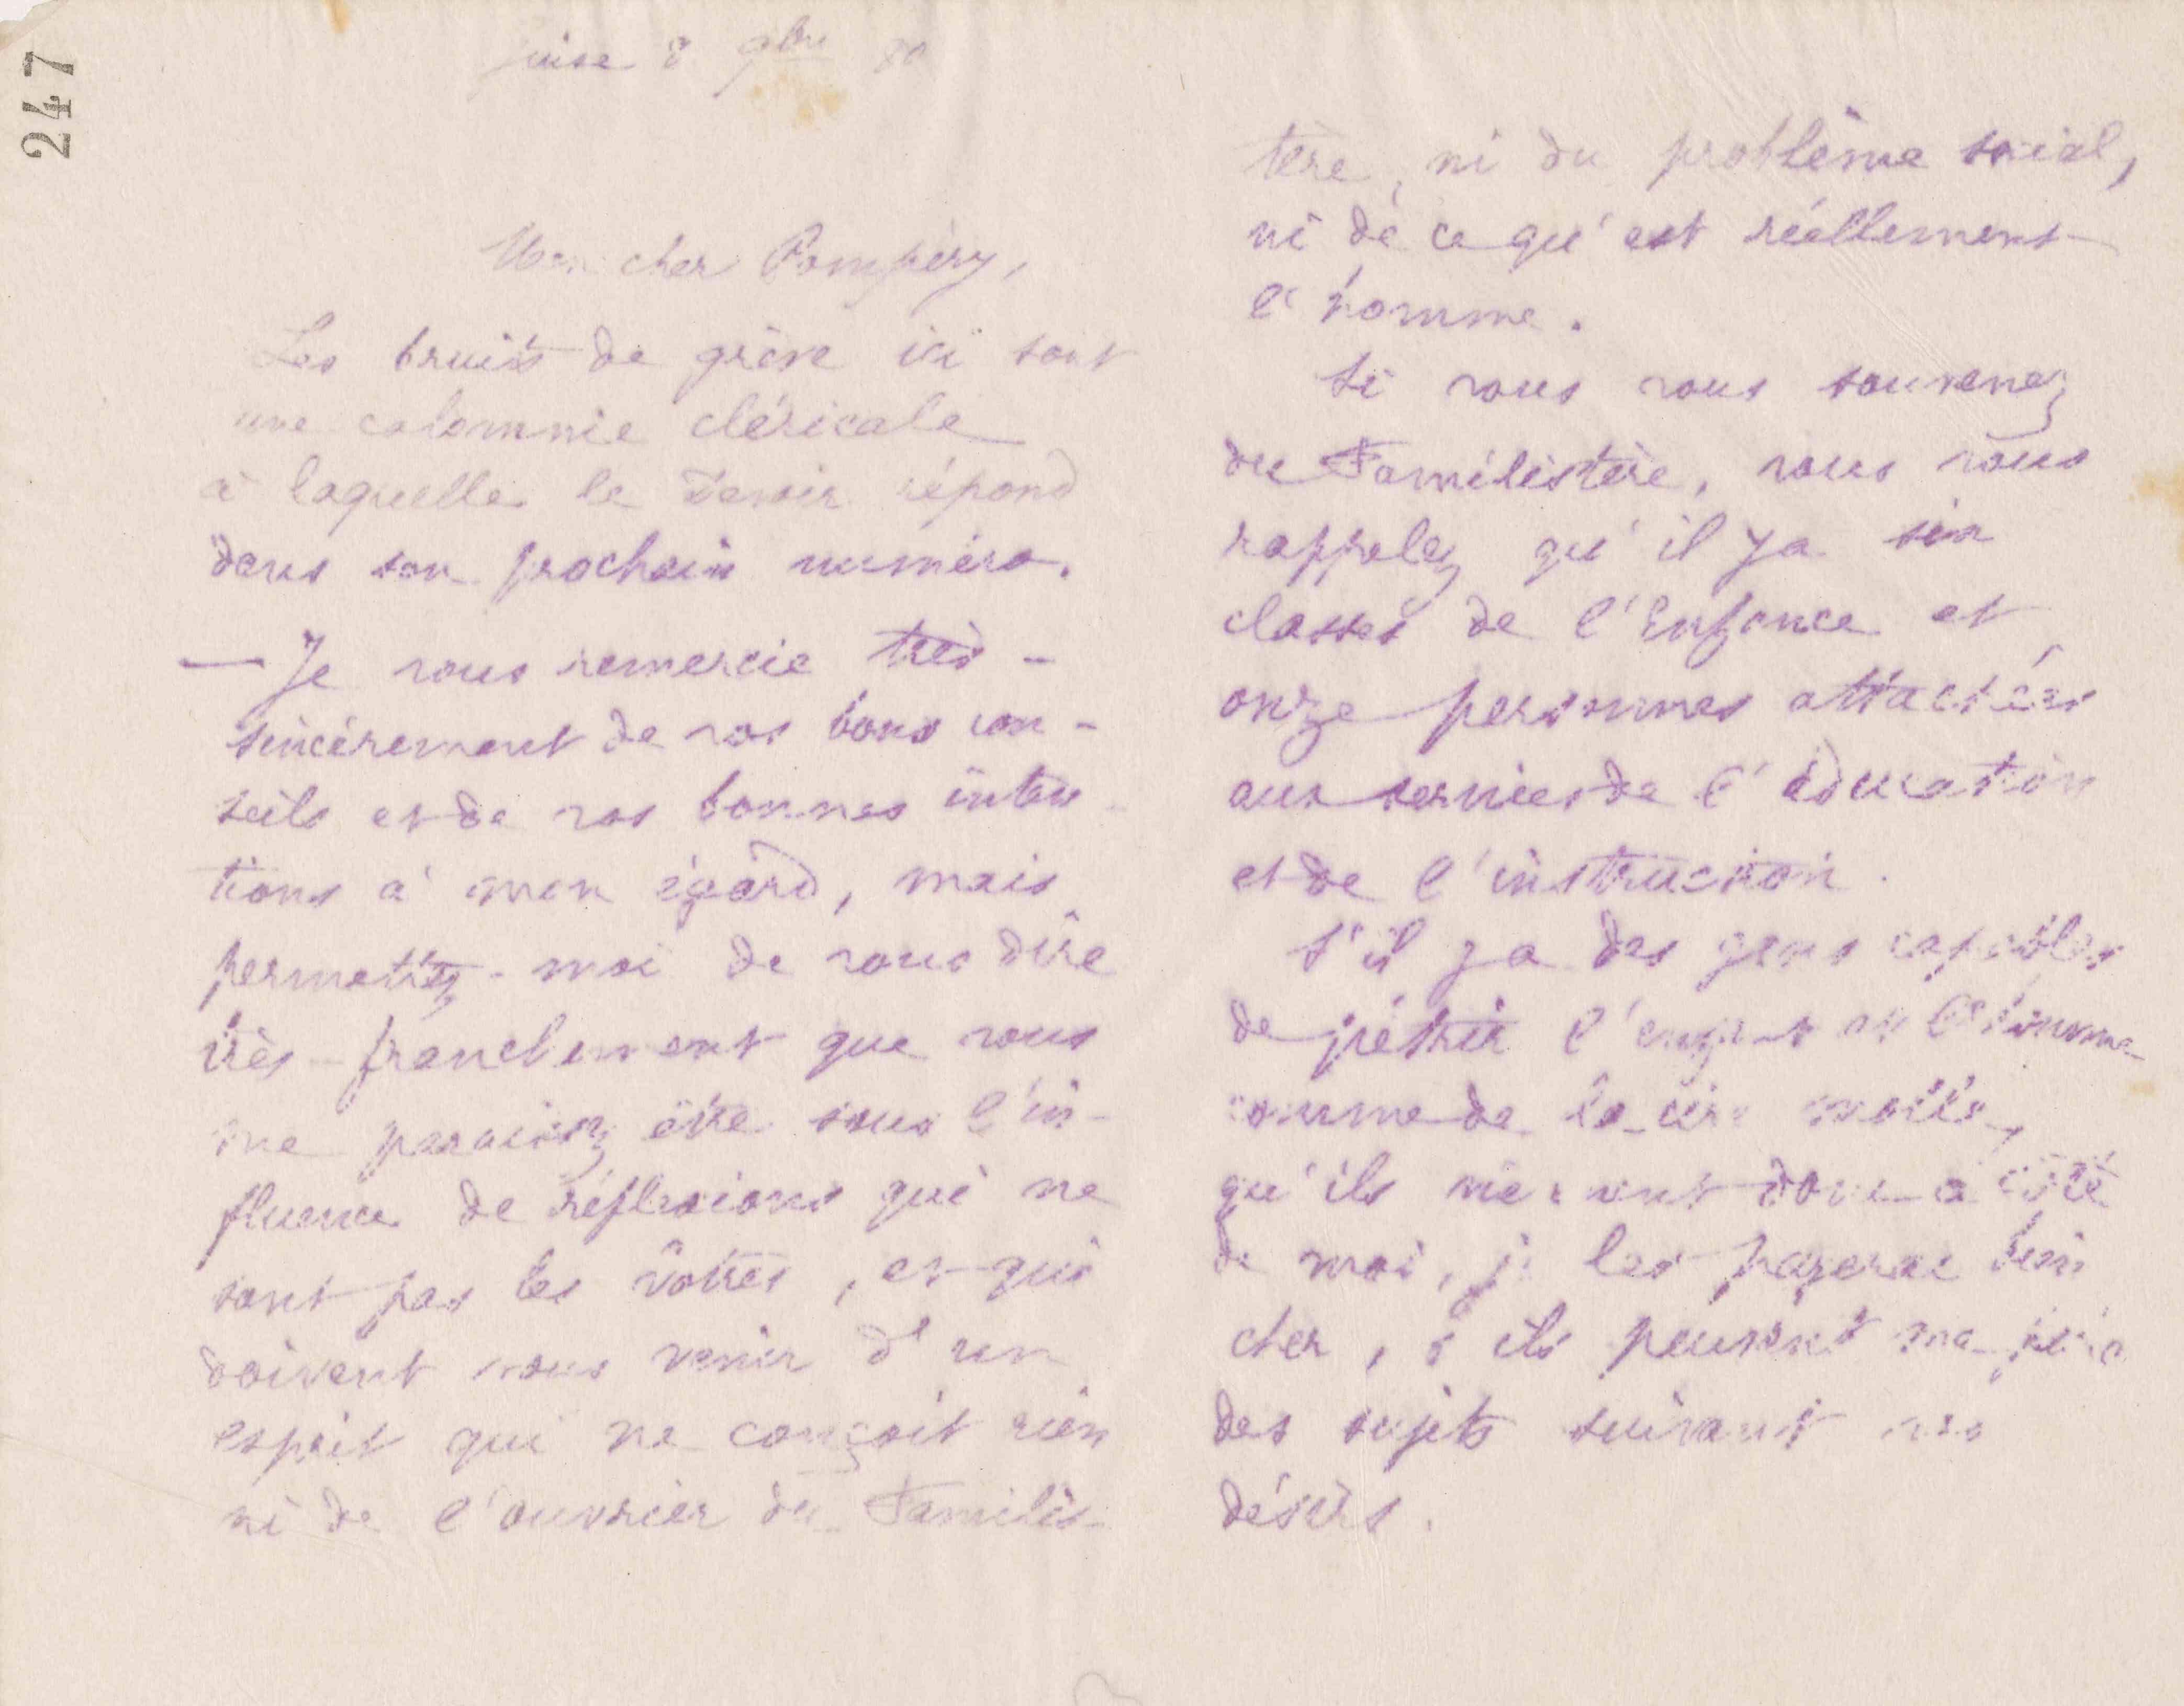 247
8 9bre 80
Mon cher Pompéry,
Les bruits de grève ici sont
une calomnie cléricale
à laquelle le Devoir répond
dans son prochain numéro.
— Je vous remercie très-
sincèrement de vos bons con-
seils et de vos bonnes inten-
tions à mon égard, mais
permettez-moi de vous dire
très-franchement que vous
me paraissez être sous l'in-
fluence de réflexions qui ne
sont pas les vôtres, et qui
doivent vous venir d'un
esprit qui ne conçoit rien
ni de l'ouvrier du Familis-
tère, ni du problème social,
ni de ce qu'est réellement
l'homme.
Si vous vous souvenez
du Familistère, vous vous
rappelez qu'il y a six
classes de l'Enfance et
onze personnes attachées
aux services de l'éducation
et de l'instruction.
S'il y a des gens capables
de pétrir l'enfant et l'homme
comme de la cire molle,
qu'ils viennent donc à côté
de moi, je les payerai bien
cher, s'ils peuvent me faire
des sujets suivant nos
désirs.